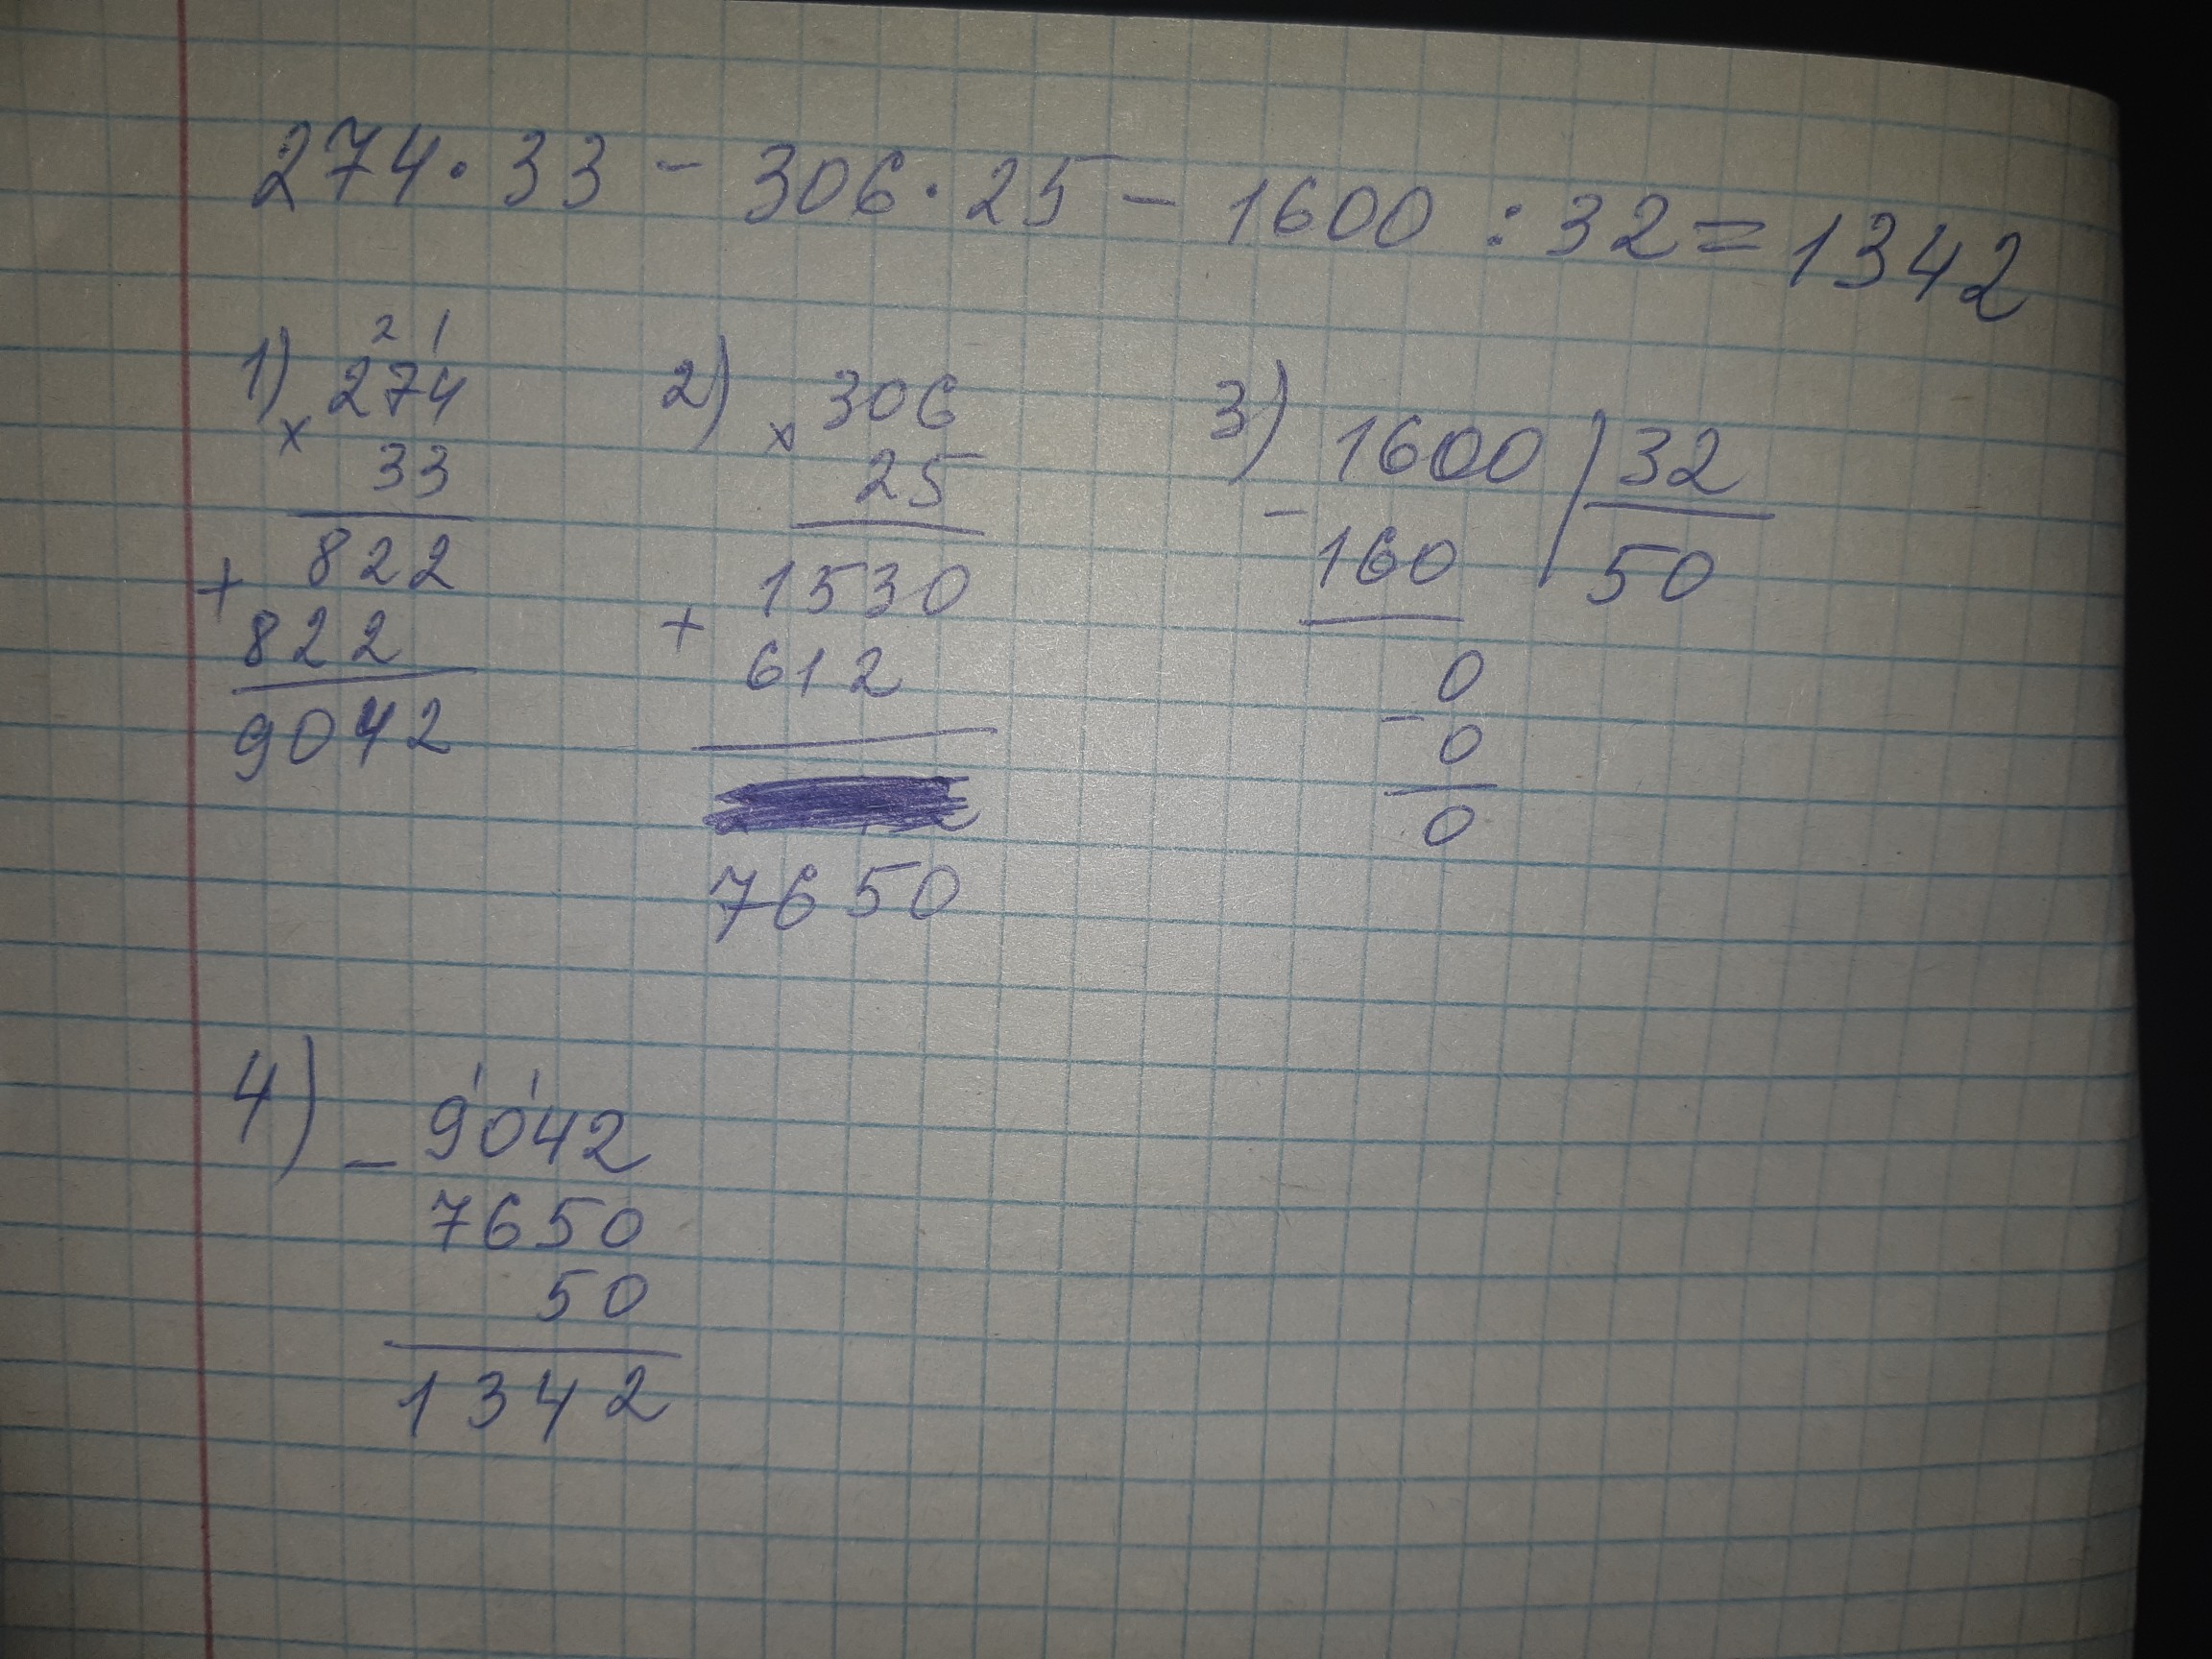 274·33 - 306·25 - 1600 : 32 = 1342
1)
2 1
274
×
33
822
+
822
9042
2)
306
×
25
1530
+
612
7650
3)
1600 | 32
-
160
50
0
-
0
0
4)
9042
-
7650
50
1342